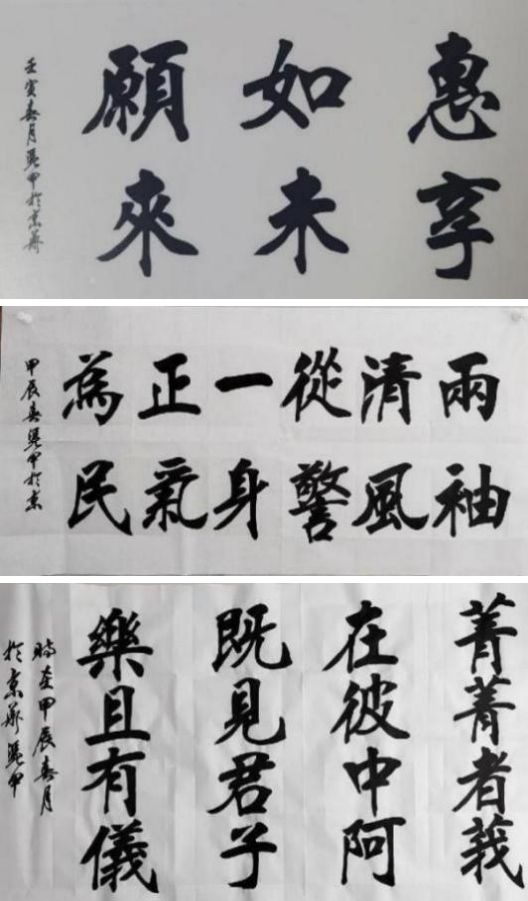 惠如願
享未來
壬寅春月甲於京華
兩袖
清風
從警
一身
正氣
為民
甲辰春甲於京
菁菁者莪
在彼中阿
既見君子
樂且有儀
時在甲辰春月
於京華甲